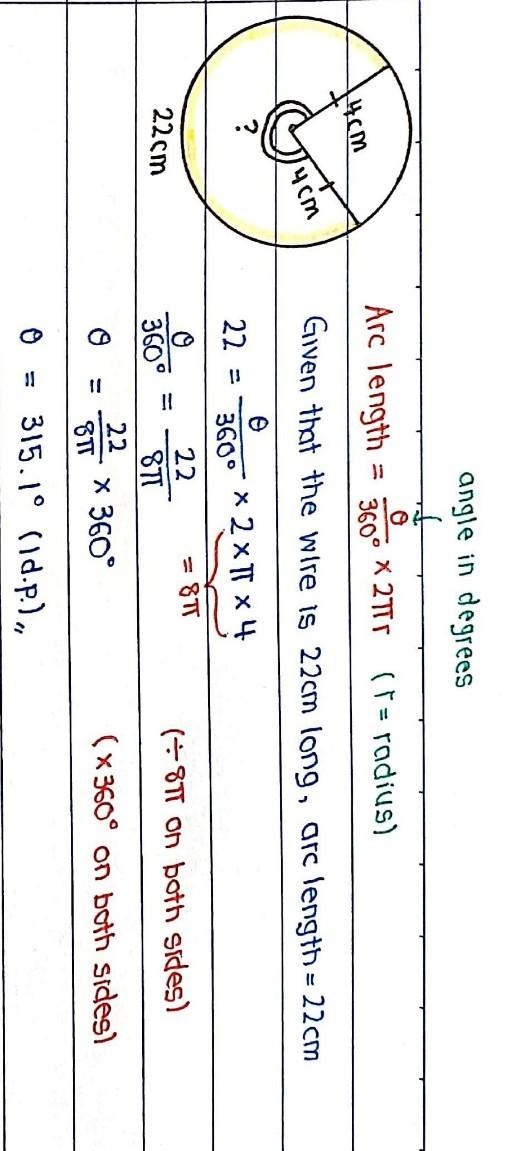 angle in degrees
Arc length = θ/360° × 2πr (r = radius)
Given that the wire is 22cm long, arc length = 22cm
22 = θ/360° × 2 × π × 4
= 8π
θ/360° = 22/8π (÷ 8π on both sides)
θ = 22/8π × 360° (× 360° on both sides)
θ = 315.1° (1d.p.)
4cm
4cm
?
22cm